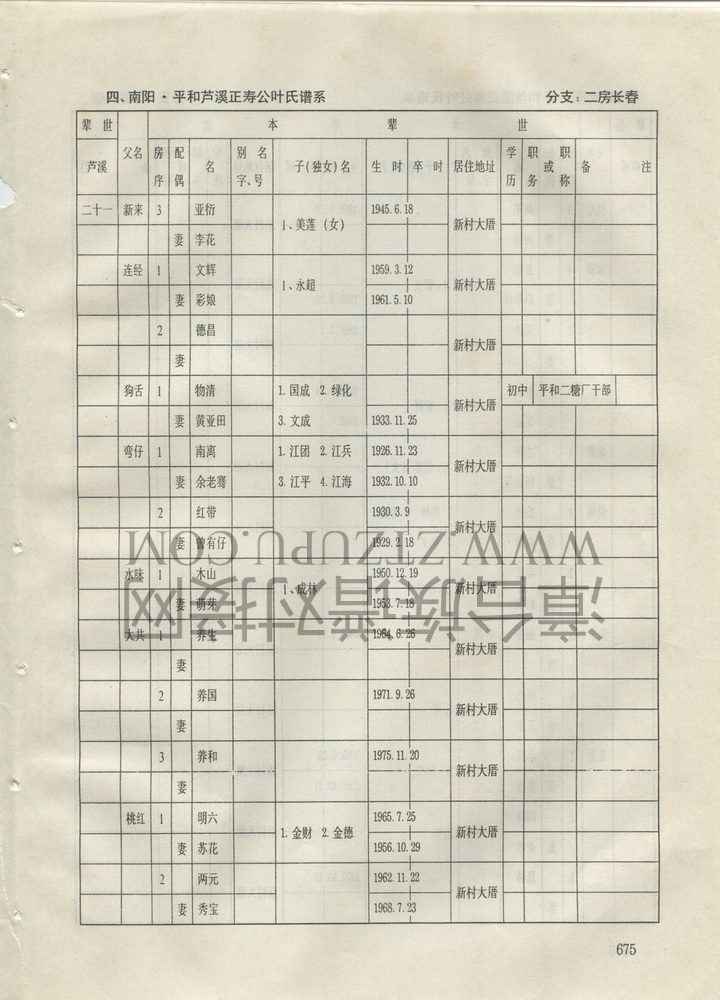 四、南阳·平和芦溪正寿公叶氏谱系 分支：二房长春
辈世 本辈世
芦溪 父名 房序 配偶 名 别名字、号 子(独女)名 生时 卒时 居住地址 学历 职务或职称 备注
二十一 新来 3 亚衍 1、美莲（女） 1945.6.18 新村大厝
妻 李花
连经 1 文辉 1、永超 1959.3.12 新村大厝
妻 彩娘 1961.5.10
2 德昌 新村大厝
妻
狗舌 1 物清 1.国成 2.绿化 新村大厝 初中 平和二糖厂干部
妻 黄亚田 3.文成 1933.11.25
弯仔 1 南离 1.江团 2.江兵 1926.11.23 新村大厝
妻 余老骞 3.江平 4.江海 1932.10.10
2 红带 1930.3.9 新村大厝
妻 曾有仔 1929.2.18
水味 1 木山 1、成林 1950.12.19 新村大厝
妻 萌芽 1953.7.18
大共 1 养生 1964.6.26 新村大厝
妻
2 养国 1971.9.26 新村大厝
妻
3 养和 1975.11.20 新村大厝
妻
桃红 1 明六 1.金财 2.金德 1965.7.25 新村大厝
妻 苏花 1956.10.29
2 两元 1962.11.22 新村大厝
妻 秀宝 1968.7.23
675
漳台族谱对接网
WWW.ZTZUPU.COM